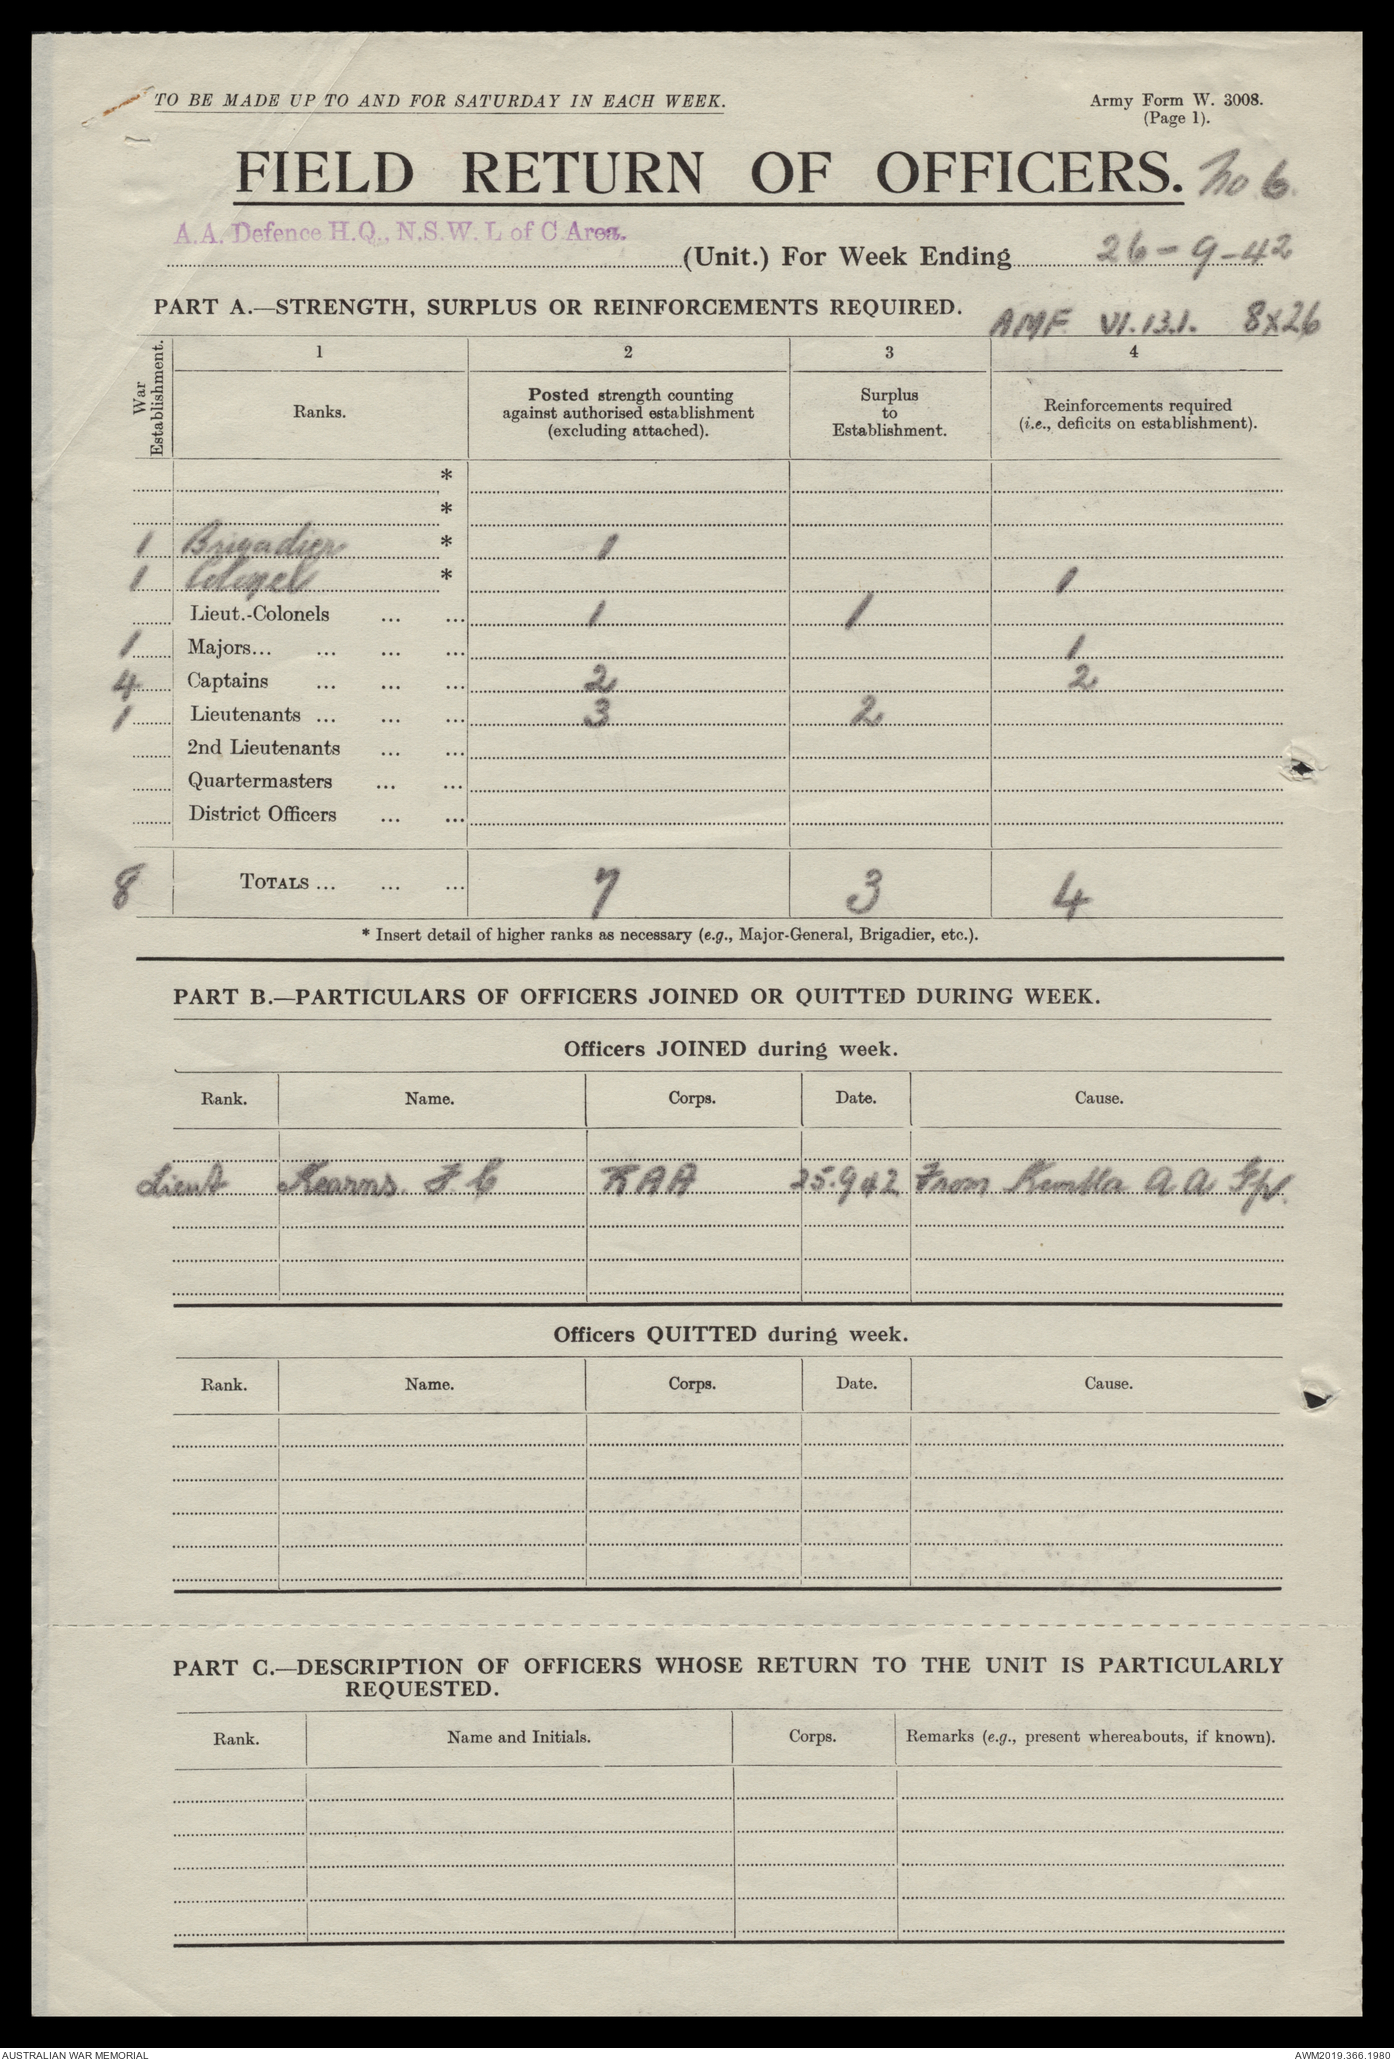 TO BE MADE UP TO AND FOR SATURDAY IN EACH WEEK.
Army Form W. 3008.
(Page 1).
FIELD RETURN OF OFFICERS. No 6.
A.A. Defence H.Q., N.S.W. L of C Area.
(Unit.) For Week Ending 26-9-42
PART A.—STRENGTH, SURPLUS OR REINFORCEMENTS REQUIRED.
AMF VI.13.1. 8x26
War Establishment.
1 2 3 4
Ranks.
Posted strength counting against authorised establishment (excluding attached).
Surplus to Establishment.
Reinforcements required (i.e., deficits on establishment).
*
*
1 Brigadier * 1
1 Colonel * 1
Lieut.-Colonels ... ... 1 1
1 Majors... ... ... ... 1
4 Captains ... ... ... 2 2
1 Lieutenants ... ... ... 3 2
2nd Lieutenants ... ...
Quartermasters ... ...
District Officers ... ...
8 TOTALS ... ... ... 7 3 4
* Insert detail of higher ranks as necessary (e.g., Major-General, Brigadier, etc.).
PART B.—PARTICULARS OF OFFICERS JOINED OR QUITTED DURING WEEK.
Officers JOINED during week.
Rank. Name. Corps. Date. Cause.
Lieut Kearns. F. C RAA 25.9.42 From Kembla A A Gp.
Officers QUITTED during week.
Rank. Name. Corps. Date. Cause.
PART C.—DESCRIPTION OF OFFICERS WHOSE RETURN TO THE UNIT IS PARTICULARLY
REQUESTED.
Rank. Name and Initials. Corps. Remarks (e.g., present whereabouts, if known).
AUSTRALIAN WAR MEMORIAL
AWM2019.366.1980